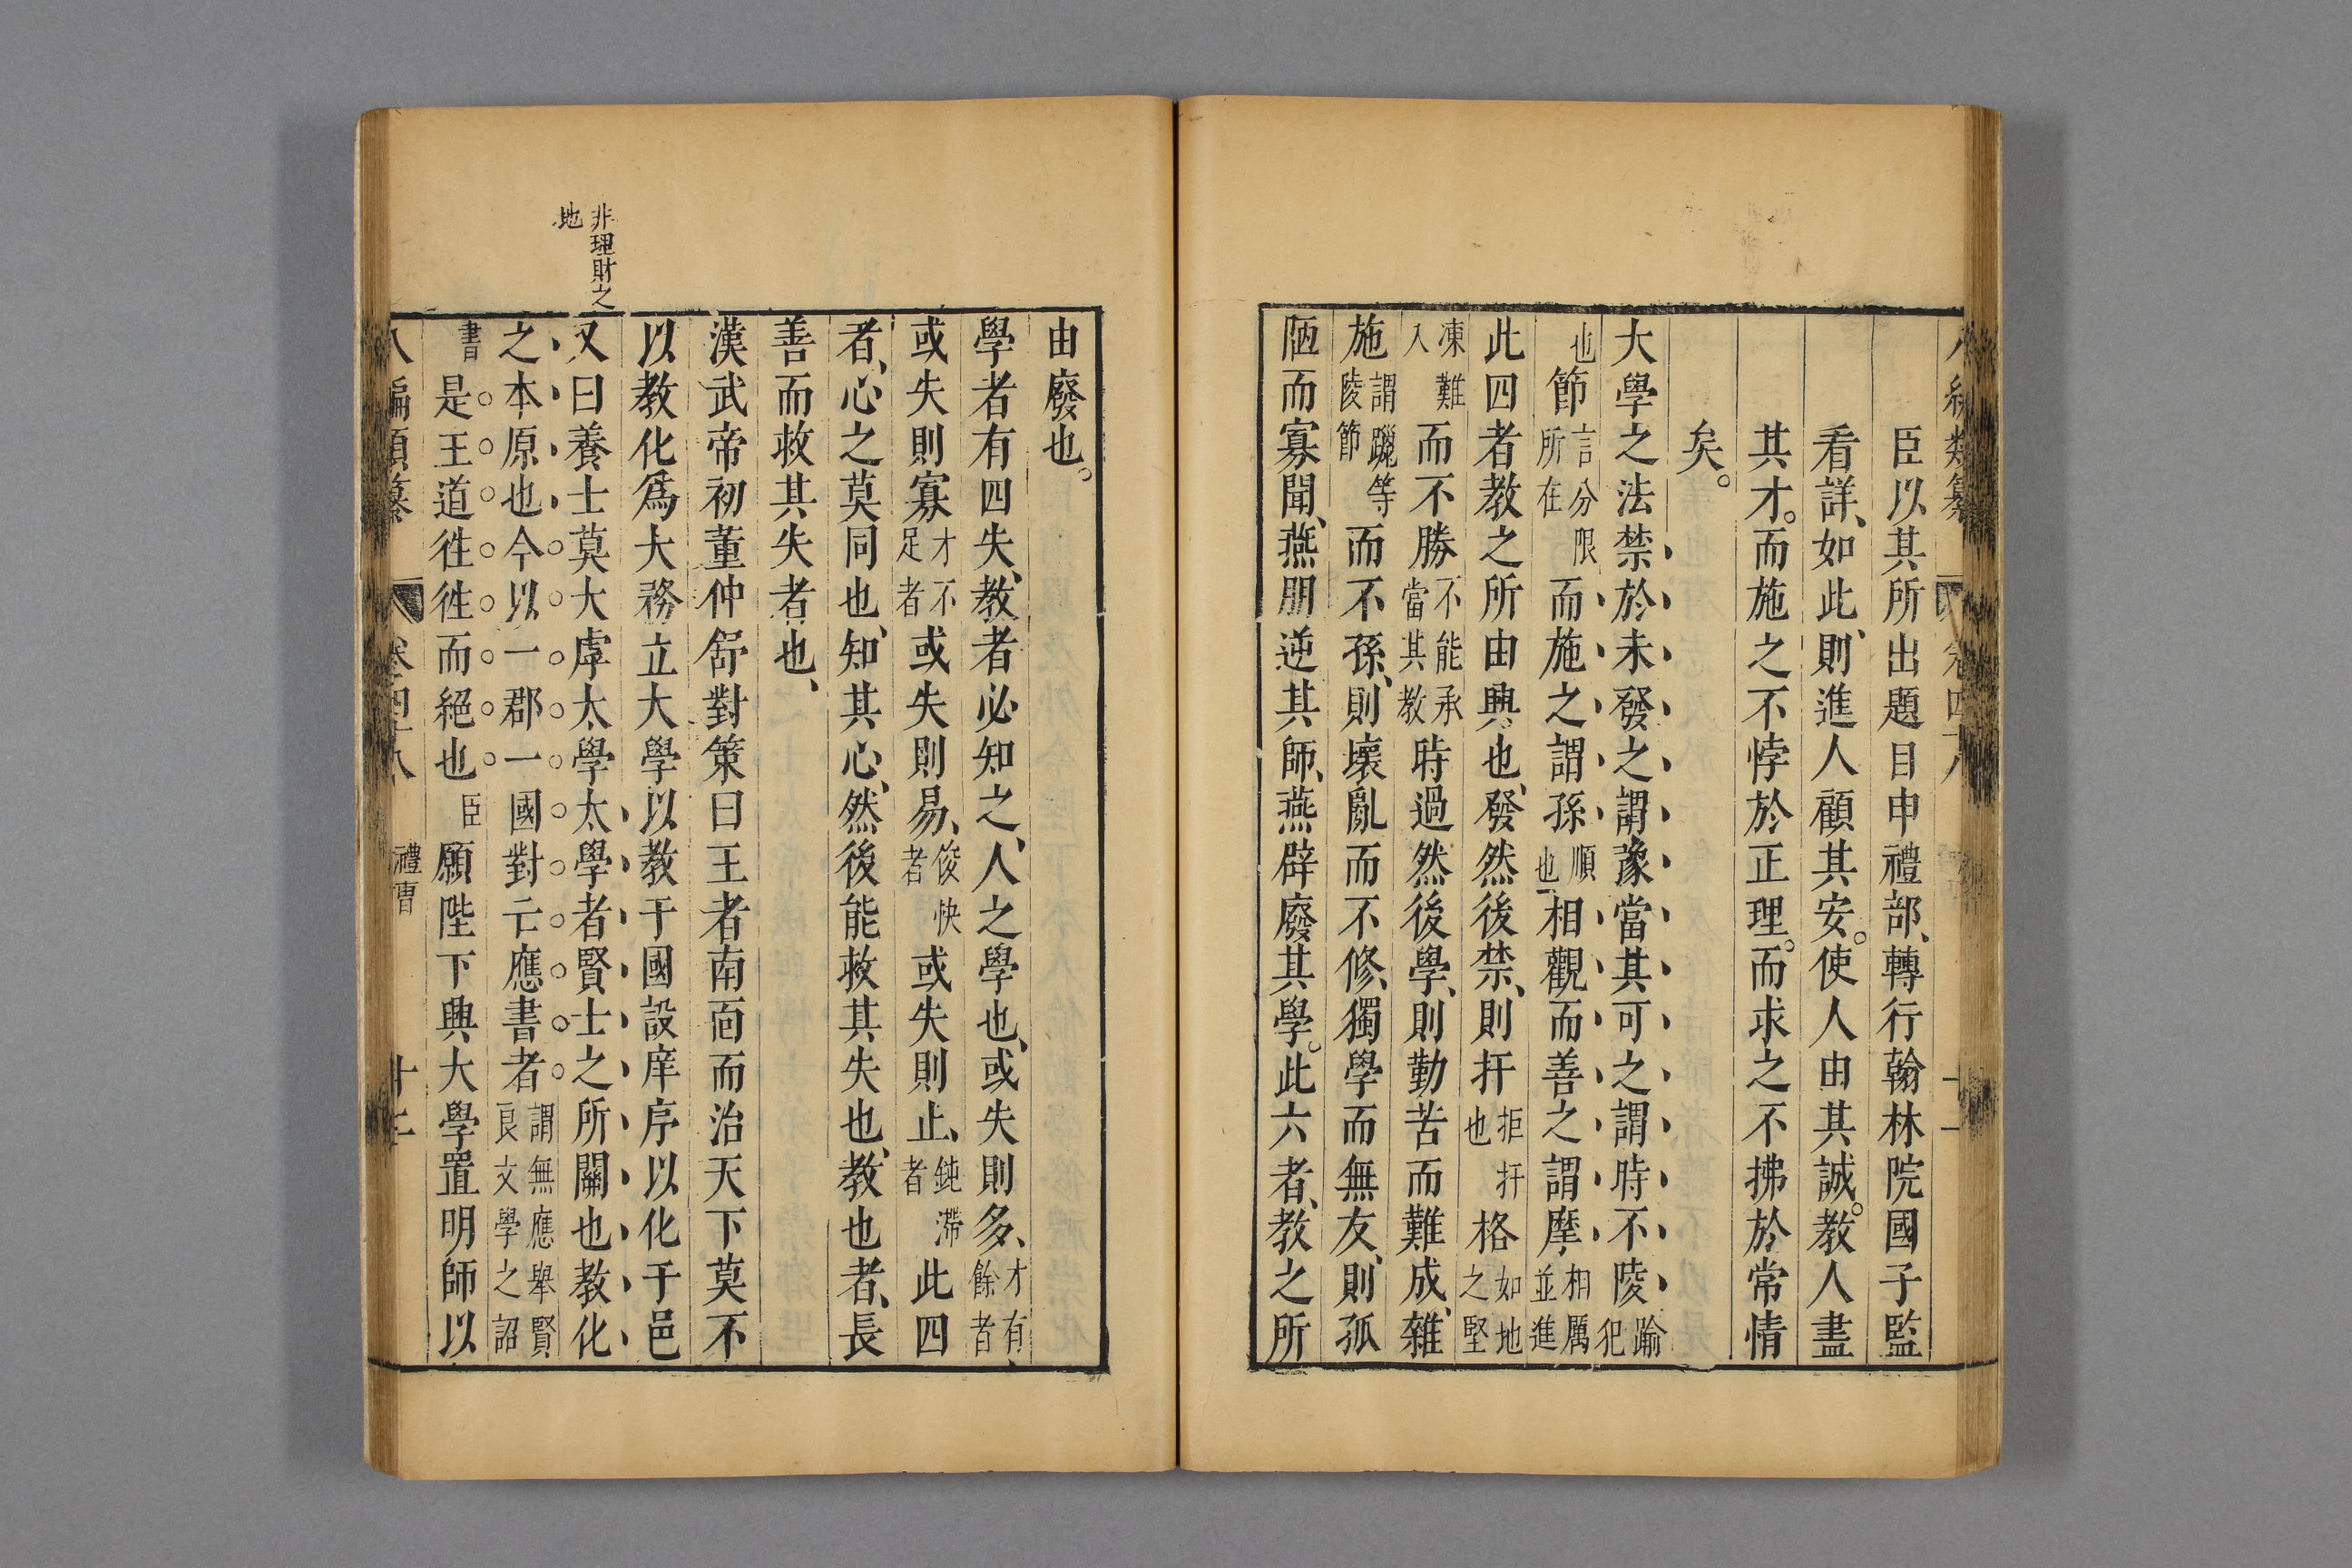 臣以其所出題目申禮部、轉行翰林院國子監
看詳、如此、則進人顧其安。使人由其誠。教人盡
其才。而施之不悖於正理。而求之不拂於常情
矣。
大學之法禁於未發之謂豫當其可之謂時不陵踰犯
也節言分限所在而施之謂孫順也相觀而善之謂摩相厲並進
此四者教之所由興也、發然後禁、則扞拒扞也格如地之堅
凍難入而不勝不能承當其教時過然後學、則勤苦而難成、雜
施謂躐等陵節而不孫、則壞亂而不修、獨學而無友、則孤
陋而寡聞、燕朋逆其師、燕辟廢其學。此六者、教之所
由廢也。
學者有四失、教者必知之、人之學也、或失則多、才有餘者
或失則寡才不足者或失則易、俊快者或失則止、鈍滯者此四
者、心之莫同也、知其心、然後能救其失也、教也者、長
善而救其失者也、
漢武帝初董仲舒對策曰王者南面而治天下莫不
以教化爲大務立大學以教于國設庠序以化于邑
非理財之
地
又曰養士莫大虖太學太學者賢士之所關也教化
之本原也今以一郡一國對亡應書者謂無應舉賢良文學之詔
書是王道往往而絕也臣願陛下興大學置明師以
八編類纂 卷四十八 禮曹 十二